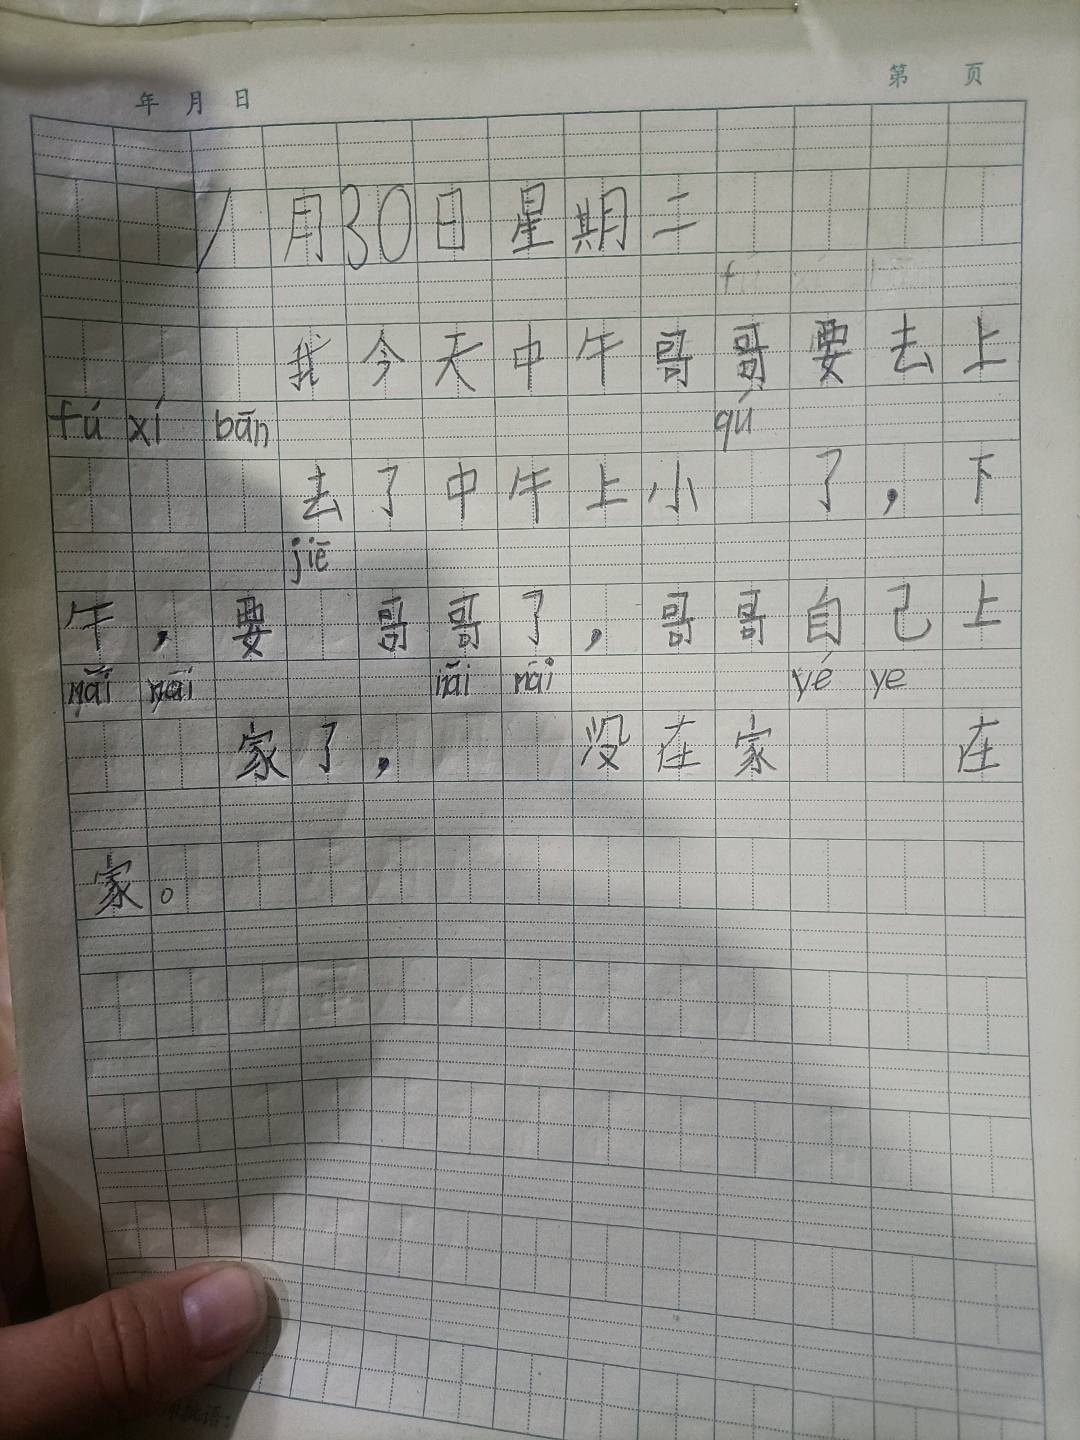 年 月 日 第 页
1月30日星期二
我今天中午哥哥要去上
fú xí bān qú
去了中午上小 了，下
jiē
午，要 哥哥了，哥哥自己上
nǎi nai nǎi nai yé ye
家了， 没在家 在
家。
师批语：